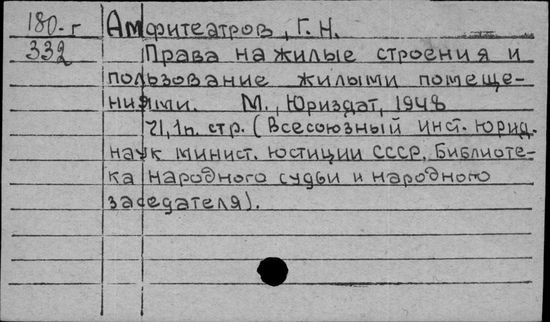 180-г Амфитеатров, Г. Н.
332 Права на жилые строения и
пользование жилыми помеще-
ниями. М., Юриздат, 1948
71, 1п. стр. (Всесоюзный инст. юрид.
наук минист. юстиции СССР, Библиоте-
ка народного судьи и народного
заседателя).